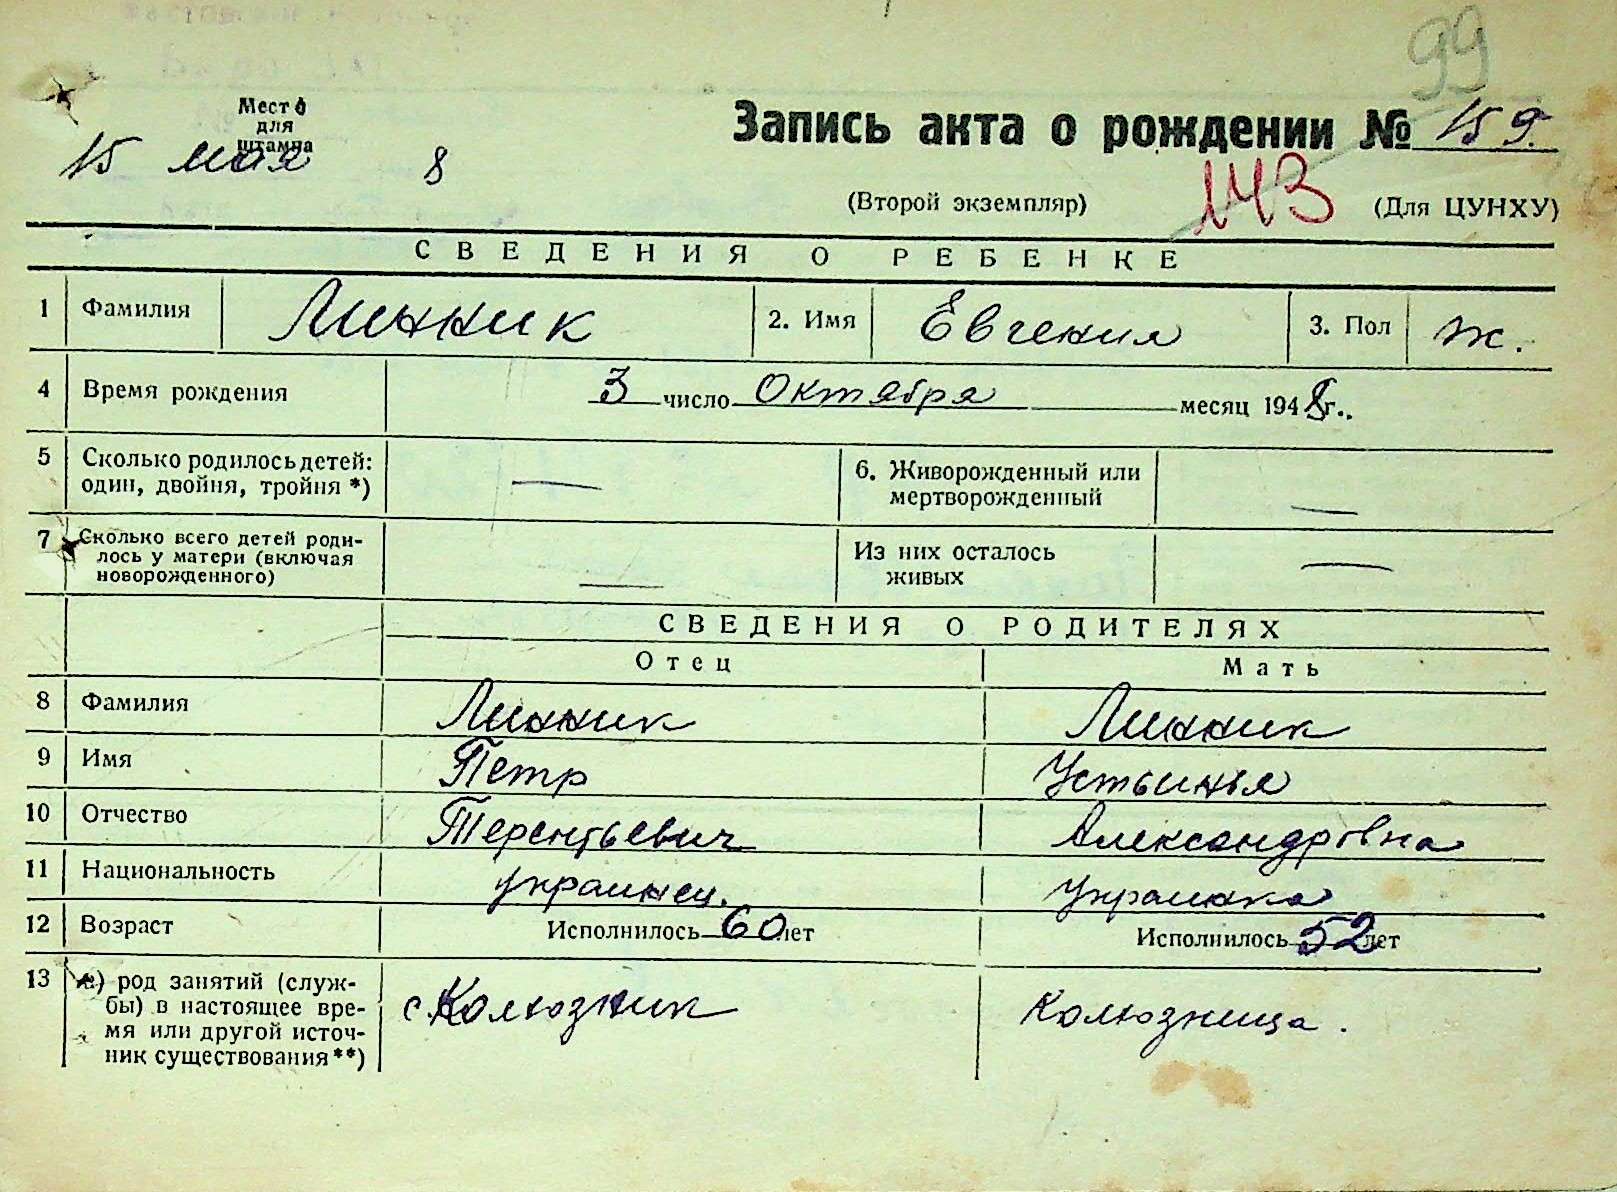 99
Место
для
штампа
15 мая 8
Запись акта о рождении № 159.
(Второй экземпляр) 143 (Для ЦУНХУ)
СВЕДЕНИЯ О РЕБЕНКЕ
1 Фамилия Линник 2. Имя Евгения 3. Пол ж.
4 Время рождения 3 число Октября месяц 1948 г..
5 Сколько родилось детей:
один, двойня, тройня *) —
6. Живорожденный или
мертворожденный —
7 Сколько всего детей роди-
лось у матери (включая
новорожденного) —
Из них осталось
живых —
СВЕДЕНИЯ О РОДИТЕЛЯХ
Отец Мать
8 Фамилия Линник Линник
9 Имя Петр Устьинья
10 Отчество Терентьевич Александровна
11 Национальность украинец. украинка
12 Возраст Исполнилось 60 лет Исполнилось 52 лет
13 а) род занятий (служ-
бы) в настоящее вре-
мя или другой источ-
ник существования **)
с. Колхозник Колхозница.